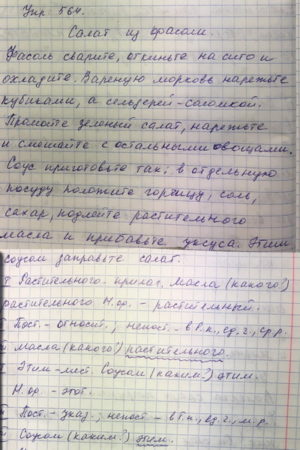 Упр. 564.
Салат из фасоли.
Фасоль сварите, откиньте на сито и
охладите. Вареную морковь нарежьте
кубиками, а сельдерей - соломкой.
Промойте зеленый салат, нарежьте
и смешайте с остальными овощами.
Соус приготовьте так: в отдельную
посуду положите горчицу, соль,
сахар, подлейте растительного
масла и прибавьте уксуса. Этим
соусом заправьте салат.
Растительного - прилаг. Масла (какого?)
растительного. Н.ф. - растительный.
Пост. - относит.; непост. - в Р.п., ед.ч., ср.р.
Масла (какого?) растительного.
Этим - мест. Соусом (каким?) этим.
Н.ф. - этот.
Пост. - указ.; непост. - в Т.п., ед.ч., м.р.
Соусом (каким?) этим.